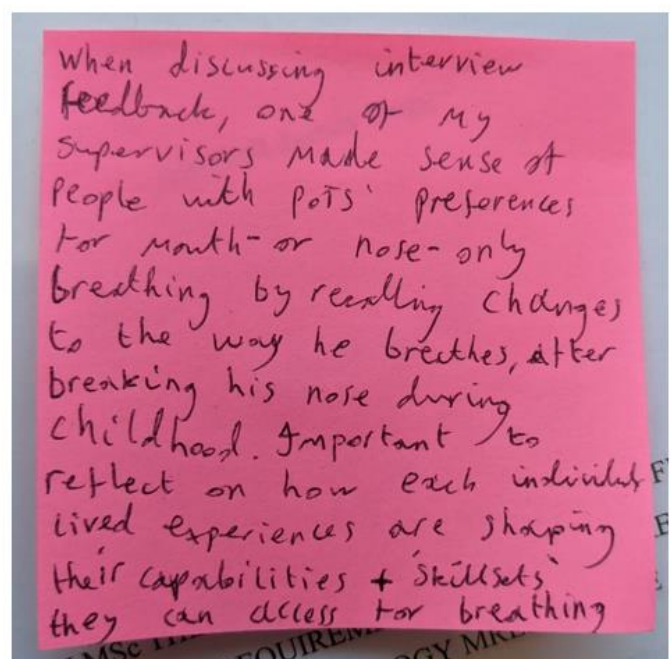 When discussing interview
feedback, one of my
supervisors made sense of
people with PoTS' preferences
for mouth- or nose-only
breathing by recalling changes
to the way he breathes, after
breaking his nose during
childhood. Important to
reflect on how each individuals
lived experiences are shaping
their capabilities + 'skillsets'
they can access for breathing
MSc TH